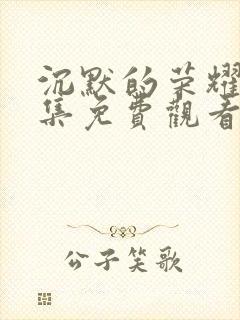 沉默的荣耀
集免費觀看
公子笑歌